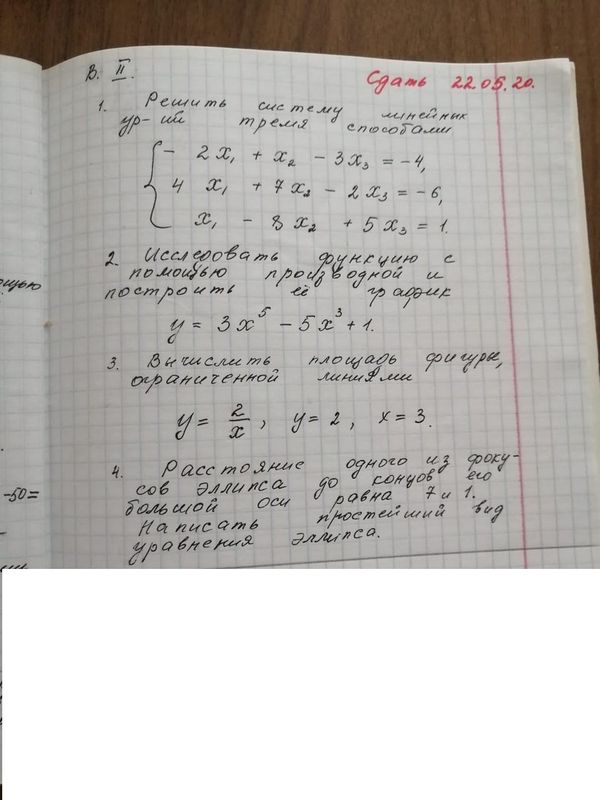 В. II.
Сдать 22.05.20.
1. Решить систему линейных
ур-ий тремя способами
- 2x₁ + x₂ - 3x₃ = -4,
4 x₁ + 7x₂ - 2x₃ = -6,
x₁ - 8x₂ + 5x₃ = 1.
2. Исследовать функцию с
помощью производной и
построить её график
y = 3x⁵ - 5x³ + 1.
3. Вычислить площадь фигуры,
ограниченной линиями
y = 2/x, y = 2, x = 3.
4. Расстояние одного из фоку-
сов эллипса до концов его
большой оси равна 7 и 1.
Написать простейший вид
уравнения эллипса.
ощью
-50=